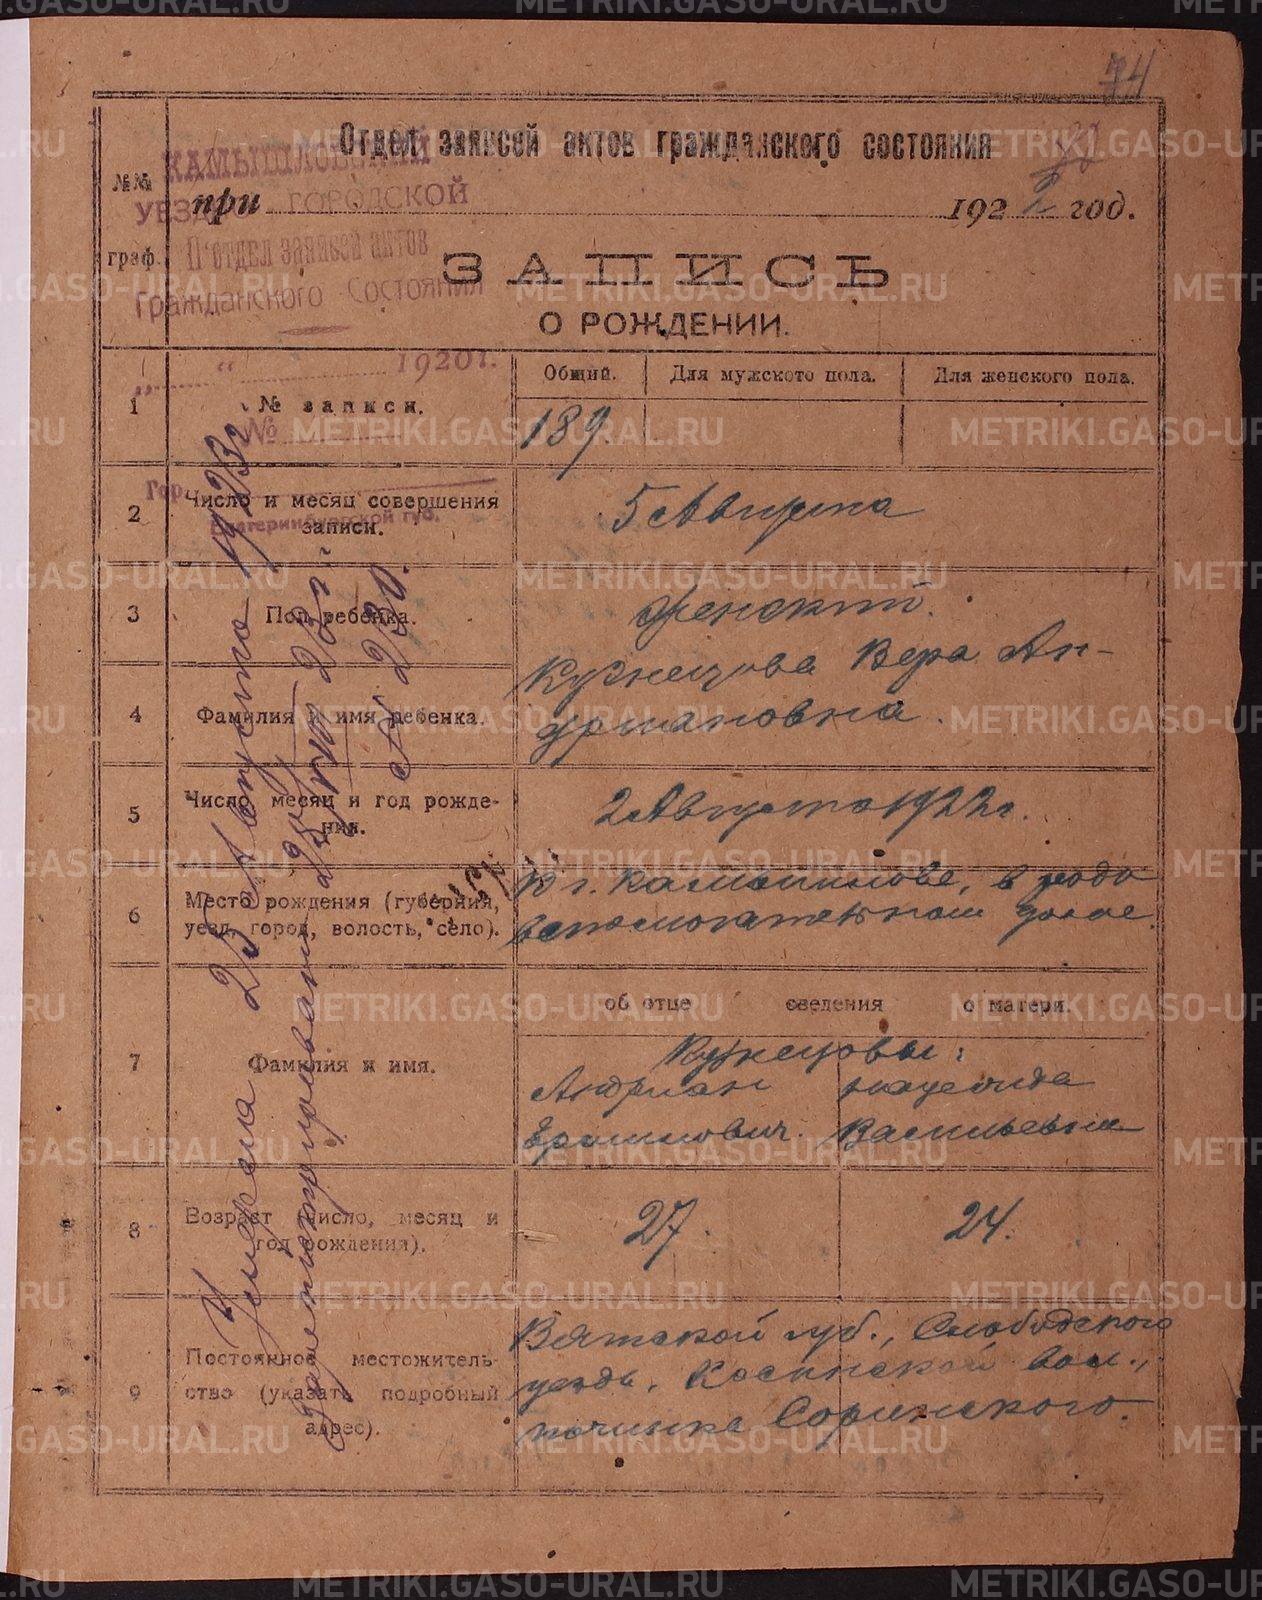 74
Отдел записей актов гражданского состояния
КАМЫШЛОВСКИЙ
УЕЗД ГОРОДСКОЙ
П'отдел записей актов
Гражданского Состояния
„ “ 1920 г.
№
Гор.
Екатеринбургской губ.
№№ граф.
при 1922 год.
ЗАПИСЬ
О РОЖДЕНИИ.
1 № записи. Общий. Для мужского пола. Для женского пола.
189
2 Число и месяц совершения записи. 5 Августа
3 Пол ребенка. Женский.
4 Фамилия и имя ребенка. Кузнецова Вера Ан-
дриановна.
5 Число, месяц и год рожде-
ния. 2 Августа 1922 г.
6 Место рождения (губерния,
уезд, город, волость, село). В г. Камышлове, в родо
вспомогательном доме.
об отце сведения о матери.
7 Фамилия и имя. Кузнецовы:
Андриан
Васильевна
8 Возраст (число, месяц и
год рождения). 27. 24.
9 Постоянное местожитель-
ство (указать подробный
адрес). Вятской губ., Слободского
уезда, Косинской вол.,
починка Соринского.
Умерла 25 Августа 1923 г.
Зарегистрирован
№ 230.
METRIKI.GASO-URAL.RU